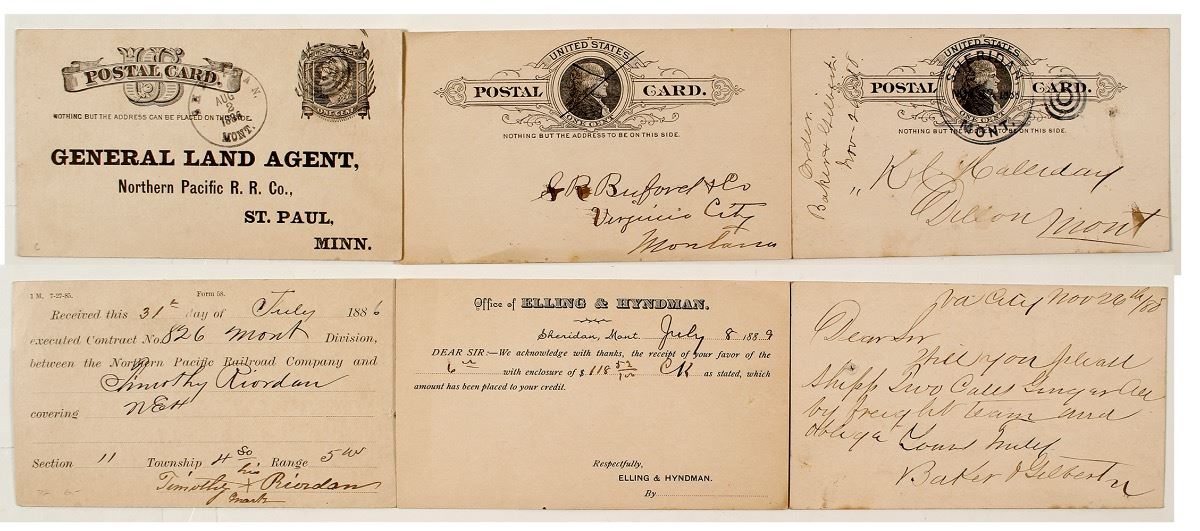 POSTAL CARD.
U S
NOTHING BUT THE ADDRESS CAN BE PLACED ON THIS SIDE.
AUG
MONT.
GENERAL LAND AGENT,
Northern Pacific R. R. Co.,
ST. PAUL,
MINN.
UNITED STATES
POSTAL CARD.
ONE CENT
NOTHING BUT THE ADDRESS TO BE ON THIS SIDE.
S R Buford & Co
Virginia City
Montana
UNITED STATES
SHERIDAN
MONT.
POSTAL CARD.
ONE CENT
NOTHING BUT THE ADDRESS TO BE ON THIS SIDE.
Order
Baker & Gilbert
Nov
Halliday
Dillon Mont
1 M. 7-27-85. Form 58.
Received this 31st day of July 1886
executed Contract No. 826 Mont Division,
between the Northern Pacific Railroad Company and
Timothy Riordan
covering
Section 11 Township 4 So Range 5 W
his
Timothy X Riordan
mark
Office of ELLING & HYNDMAN.
Sheridan, Mont July 8 1889
DEAR SIR:—We acknowledge with thanks, the receipt of your favor of the
6th with enclosure of $ 118 52/100 CK as stated, which
amount has been placed to your credit.
Respectfully,
ELLING & HYNDMAN.
By
Va City Nov 26th/88
Dear Sir
Will you please
shipp Two Cases Ginger Ale
by freight team and
oblige Yours
Baker & Gilbert